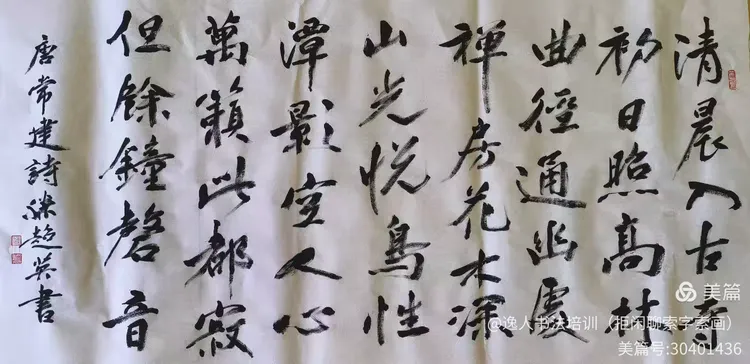 清晨入古寺
初日照高林
曲徑通幽處
禪房花木深
山光悦鳥性
潭影空人心
萬籟此都寂
但餘鐘磬音
唐常建詩梁超英書
美篇
@逸人书法培训（拒闲聊索字索画）
美篇号:30401436